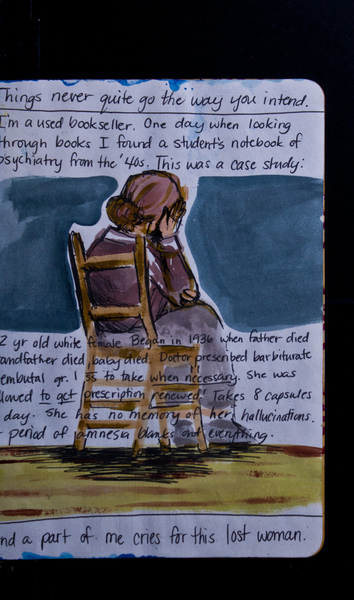 Things never quite go the way you intend.
I'm a used bookseller. One day when looking
through books I found a student's notebook of
psychiatry from the '40s. This was a case study:
2 yr old white female Began in 1936 when father died
andfather died, baby died. Doctor prescribed barbiturate
embutal gr. 1 ss to take when necessary. She was
lowed to get prescription renewed. Takes 8 capsules
day. She has no memory of her hallucinations.
period of amnesia blanks out everything.
nd a part of me cries for this lost woman.